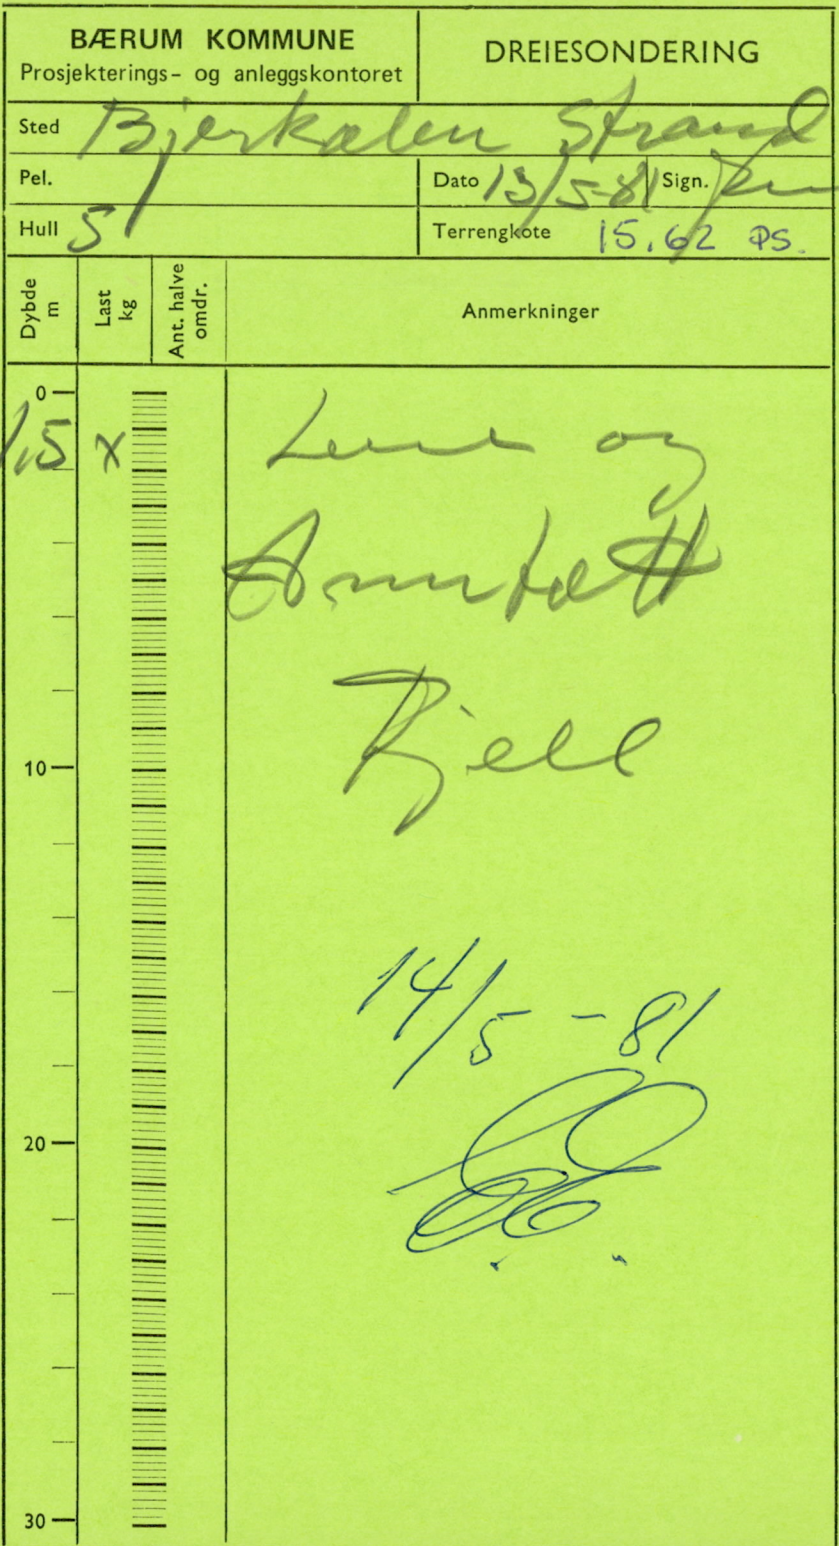 BÆRUM KOMMUNE
Prosjekterings- og anleggskontoret
DREIESONDERING
Sted Bjerkalen Strand
Pel.
Dato 13/5-81 Sign.
Hull 5
Terrengkote 15.62 PS.
Dybde m
Last kg
Ant. halve omdr.
Anmerkninger
0
1,5 x
og
Antatt
Fjell
10
14/5-81
20
30